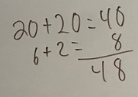 20+20=40
6+2= 8
48